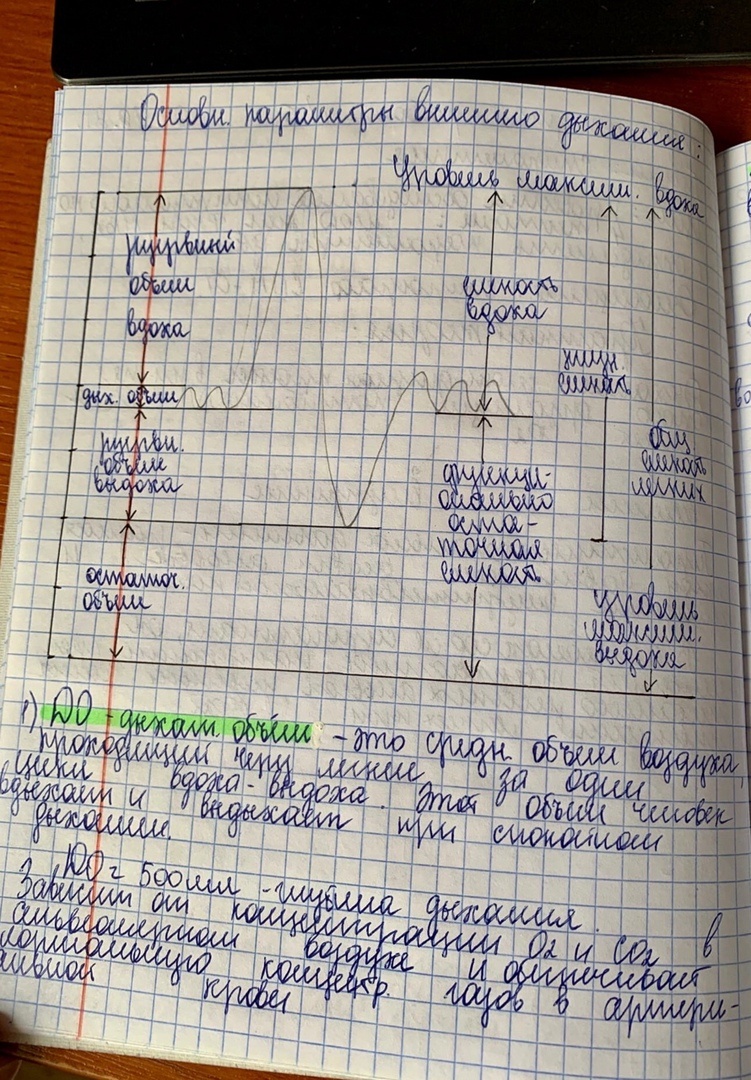 Основн. параметры внешнего дыхания:
Уровень максим. вдоха
резервный
объем
вдоха
ёмкость
вдоха
жизн.
емкость
дых. объем
резерв.
объем
выдоха
общ.
емкость
легких
функци-
онально
оста-
точная
емкость
остаточ.
объем
уровень
максим.
выдоха
1) ДО - дыхат. объём - это средн. объем воздуха,
проходящий через легкие за один
цикл вдоха-выдоха. Этот объем человек
вдыхает и выдыхает при спокойном
дыхании.
ДО = 500 мл - глубина дыхания.
Зависит от концентрации O2 и CO2 в
альвеолярном воздухе и обеспечивает
нормальную концентр. газов в артери-
альной крови